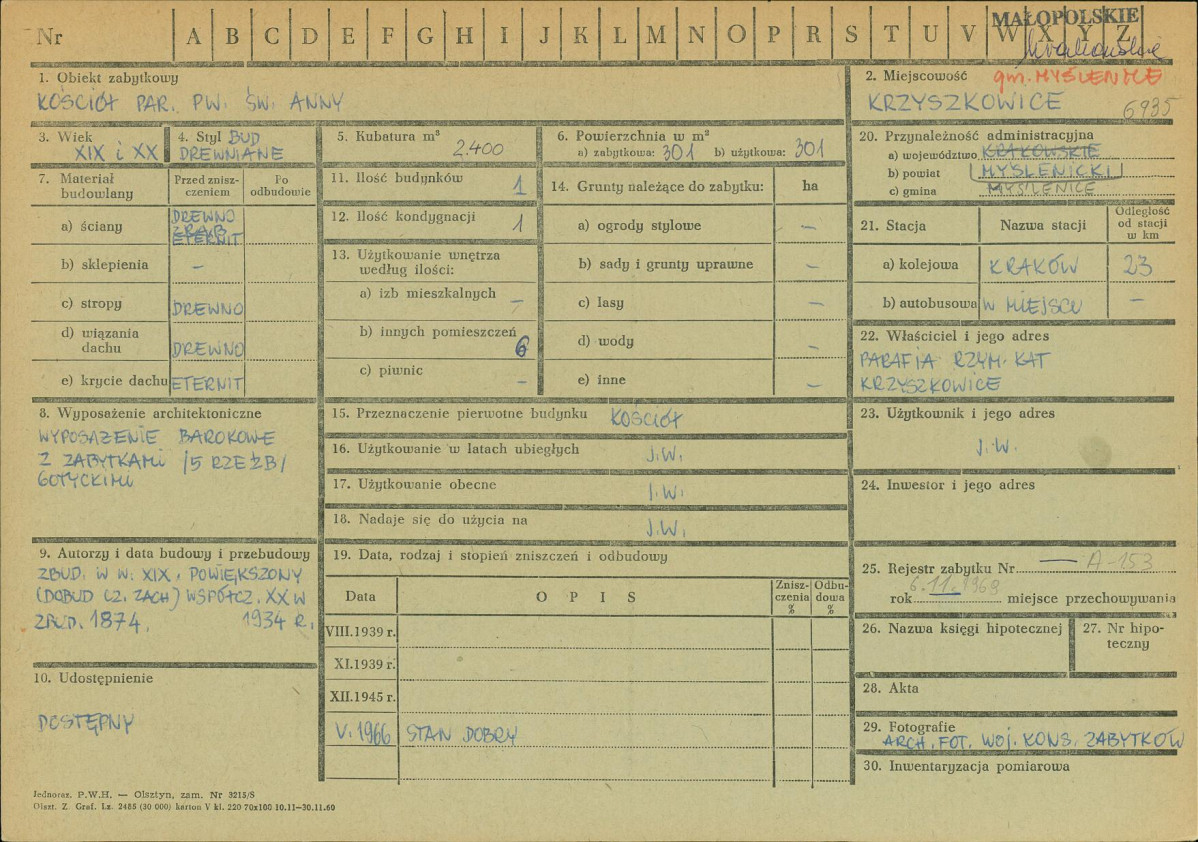 Nr A B C D E F G H I J K L M N O P R S T U V W X Y Z
MAŁOPOLSKIE
krakowskie
1. Obiekt zabytkowy
KOŚCIÓŁ PAR. PW. ŚW. ANNY
2. Miejscowość gm. MYŚLENICE
KRZYSZKOWICE 6935
3. Wiek
XIX i XX
4. Styl BUD
DREWNIANE
5. Kubatura m³
2.400
6. Powierzchnia w m²
a) zabytkowa: 301 b) użytkowa: 301
7. Materiał budowlany
Przed znisz-
czeniem
Po
odbudowie
a) ściany DREWNO
ZRĄB
ETERNIT
b) sklepienia –
c) stropy DREWNO
d) wiązania
dachu DREWNO
e) krycie dachu ETERNIT
8. Wyposażenie architektoniczne
WYPOSAŻENIE BAROKOWE
Z ZABYTKAMI /5 RZEŹB/
GOTYCKIMI
9. Autorzy i data budowy i przebudowy
ZBUD. W W. XIX, POWIĘKSZONY
(DOBUD CZ. ZACH) WSPÓŁCZ. XX W
ZBUD. 1874. 1934 R.
10. Udostępnienie
DOSTĘPNY
11. Ilość budynków 1
12. Ilość kondygnacji 1
13. Użytkowanie wnętrza
według ilości:
a) izb mieszkalnych –
b) innych pomieszczeń 6
c) piwnic –
14. Grunty należące do zabytku: ha
a) ogrody stylowe –
b) sady i grunty uprawne –
c) lasy –
d) wody –
e) inne –
15. Przeznaczenie pierwotne budynku KOŚCIÓŁ
16. Użytkowanie w latach ubiegłych J.W.
17. Użytkowanie obecne J.W.
18. Nadaje się do użycia na J.W.
19. Data, rodzaj i stopień zniszczeń i odbudowy
Data O P I S
Znisz-
czenia
%
Odbu-
dowa
%
VIII.1939 r.
XI.1939 r.
XII.1945 r.
V.1966 STAN DOBRY
20. Przynależność administracyjna
a) województwo KRAKOWSKIE
b) powiat MYŚLENICKI
c) gmina MYŚLENICE
21. Stacja Nazwa stacji
Odległość
od stacji
w km
a) kolejowa KRAKÓW 23
b) autobusowa W MIEJSCU –
22. Właściciel i jego adres
PARAFIA RZYM. KAT
KRZYSZKOWICE
23. Użytkownik i jego adres
J.W.
24. Inwestor i jego adres
25. Rejestr zabytku Nr — A-153
rok 6.11.1968 miejsce przechowywania
26. Nazwa księgi hipotecznej
27. Nr hipo-
teczny
28. Akta
29. Fotografie
ARCH. FOT. WOJ. KONS. ZABYTKÓW
30. Inwentaryzacja pomiarowa
Jednoraz. P.W.H. — Olsztyn, zam. Nr 3215/S
Olszt. Z. Graf. Lz. 2485 (30 000) karton V kl. 220 70x100 10.11—30.11.60